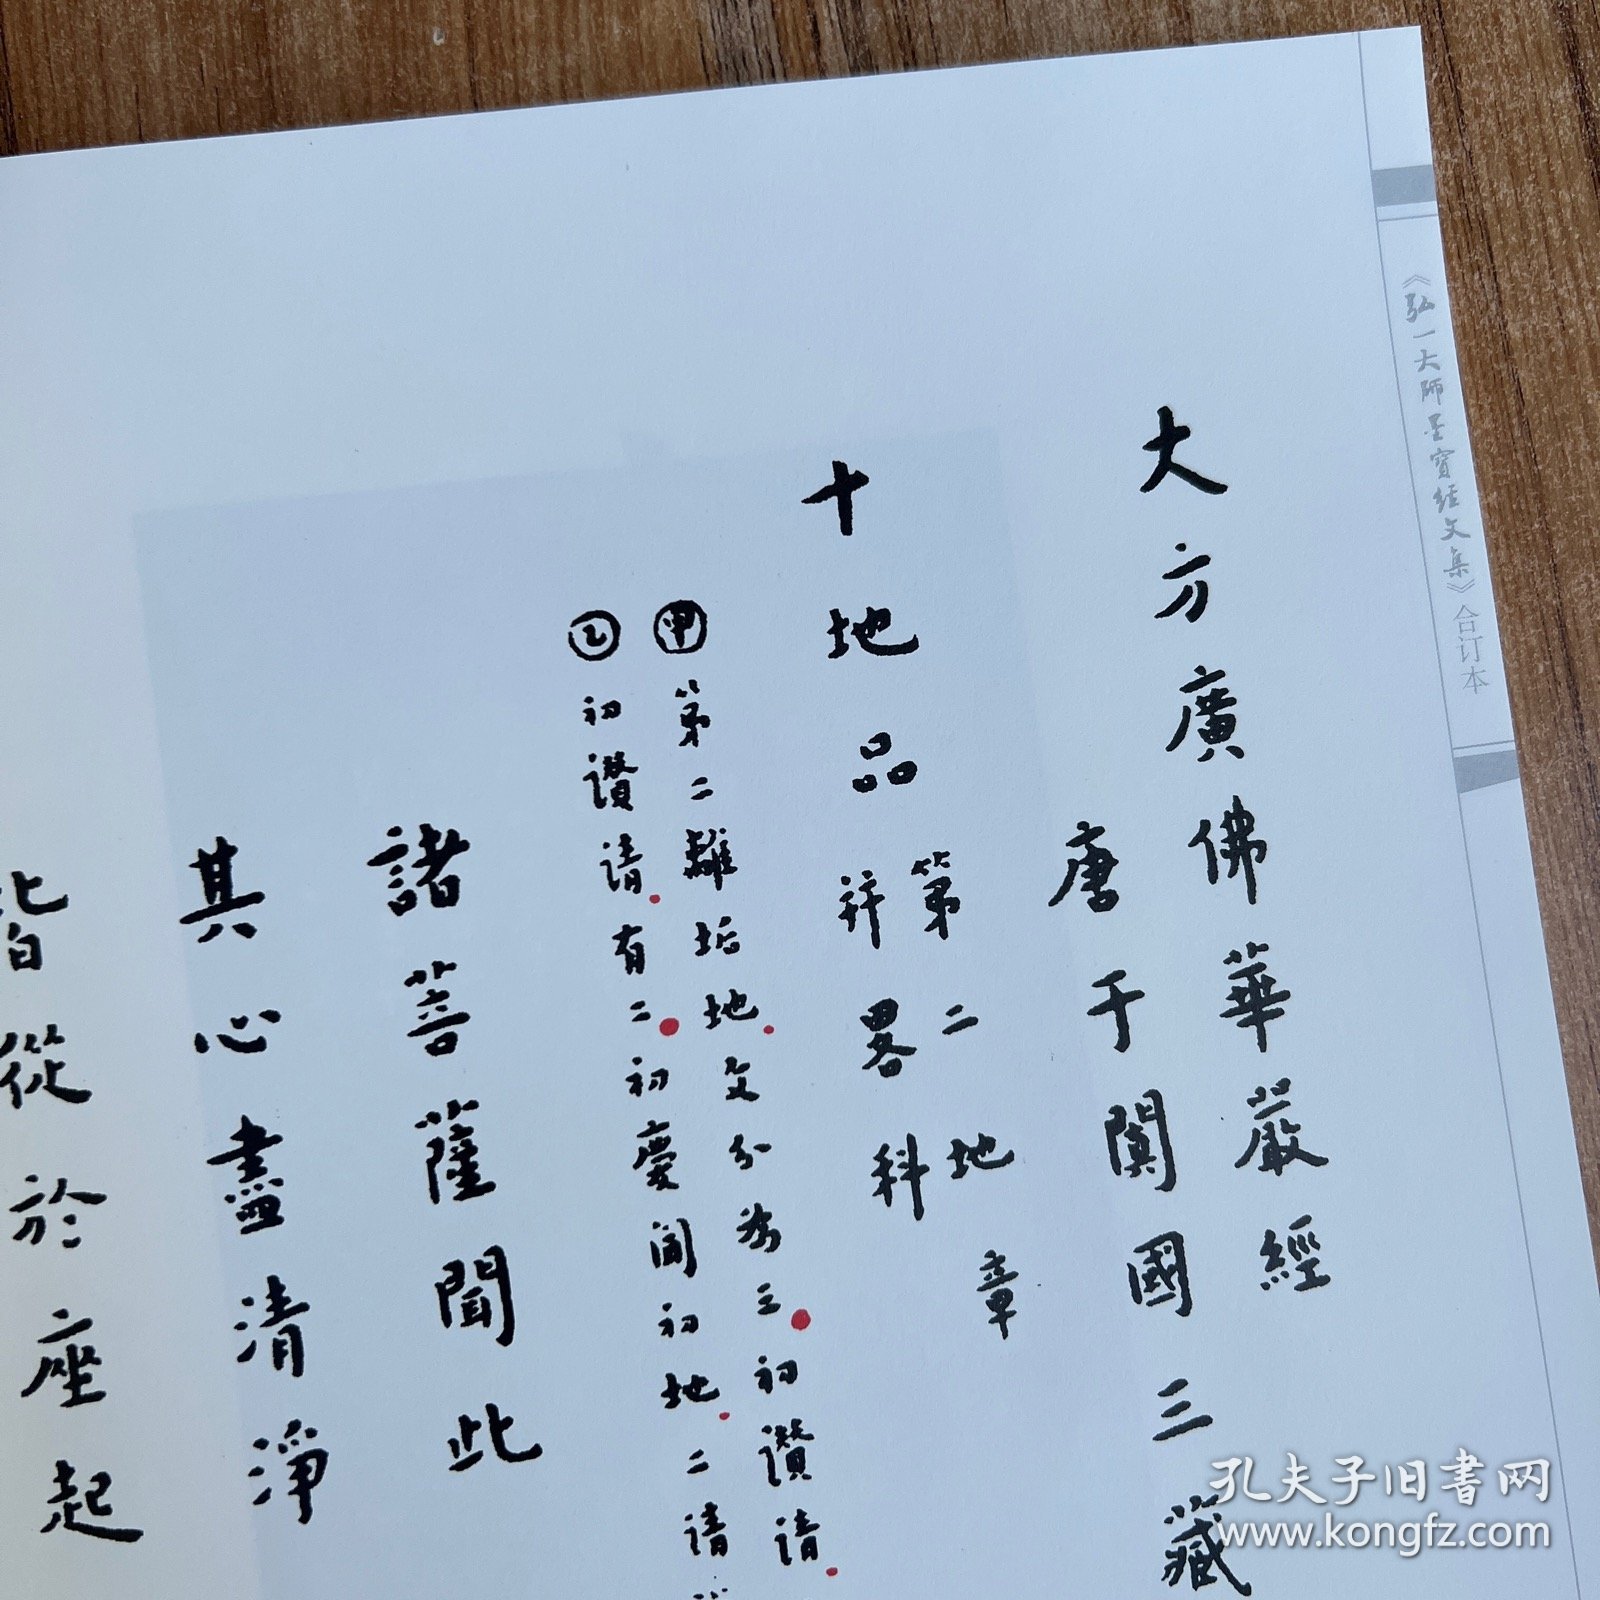 《弘一大师墨宝经文集》合订本
大方廣佛華嚴經
唐于闐國三藏
十地品
第二地章
并畧科
甲 第二離垢地.文分為三.初讚請.
乙 初讚請.有二.初慶聞初地.二請
諸菩薩聞此
其心盡清淨
皆從於座起
孔夫子旧书网
www.kongfz.com